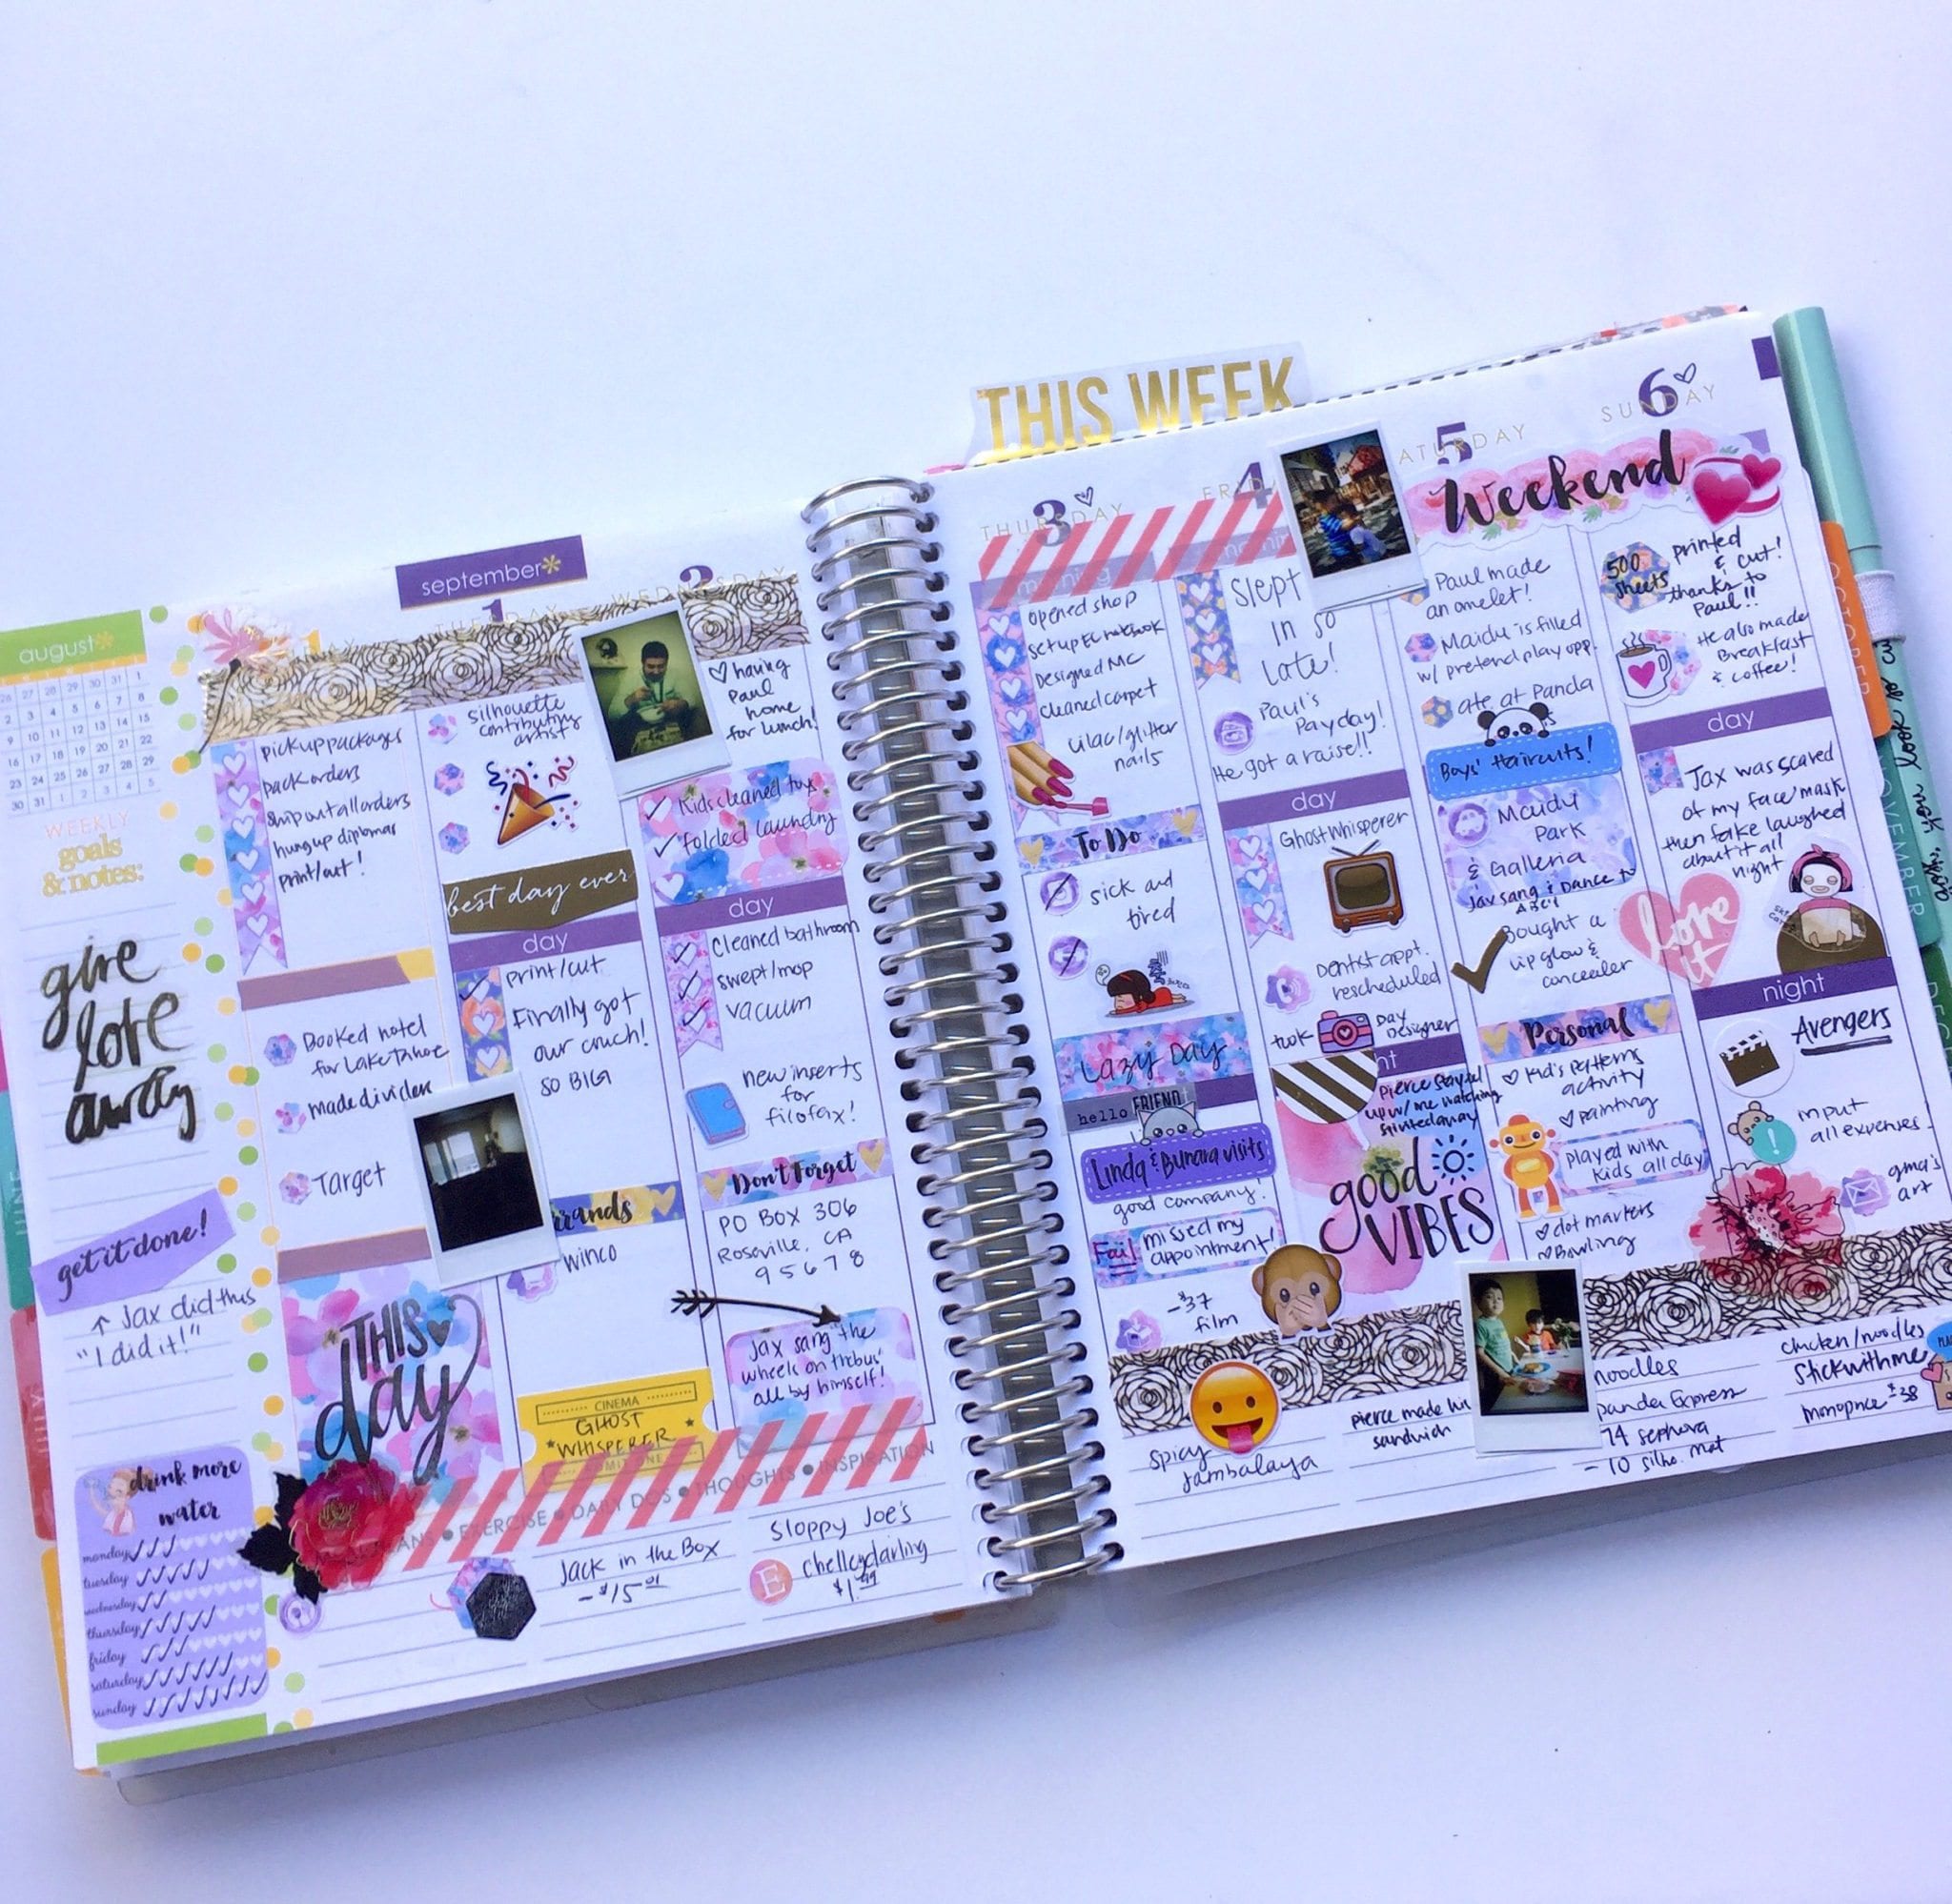 THIS WEEK
august
26 27 28 29 30 31 1
2 3 4 5 6 7 8
9 10 11 12 13 14 15
16 17 18 19 20 21 22
23 24 25 26 27 28 29
30 31 1 2 3 4 5
WEEKLY
goals
& notes:
give
love
away
get it done!
↑ Jax did this
"I did it!"
drink more
water
monday
tuesday
wednesday
thursday
friday
saturday
sunday
pick up packages
pack orders
ship out all orders
hung up diplomas
print/cut!
Booked hotel
for Lake Tahoe
made dividers
Target
THIS
day
september
1
TUESDAY
silhouette
contributing
artist
best day ever
day
print/cut
Finally got
our couch!
so BIG
errands
winco
CINEMA
GHOST
WHISPERER
ADMIT ONE
Jack in the Box
- $15.01
2
WEDNESDAY
♡ having
Paul
home
for lunch!
Kids cleaned toys
folded laundry
day
cleaned bathroom
swept/mop
vacuum
new inserts
for
filofax!
Don't Forget
PO BOX 306
Roseville, CA
95678
Jax sang "the
wheels on the bus"
all by himself!
EXERCISE • DAILY DOS • THOUGHTS • INSPIRATION
Sloppy Joe's
E
chelleydarling
3
THURSDAY
morning
opened shop
set up EC notebook
Designed MC
cleaned carpet
lilac/glitter
nails
To Do
sick and
tired
Lazy Day
hello FRIEND
Linda & Bunara visits
good company!
Fail
missed my
appointment!
- $37
film
spicy
Jambalaya
4
FRIDAY
morning
Slept
in so
late!
Paul's
Payday!
He got a raise!!
day
Ghost Whisperer
Dentist appt.
rescheduled
took
Day
Designer
night
Pierce stayed
up w/ me watching
spirited away
good
VIBES
pierce made his
sandwich
5
SATURDAY
Weekend
Paul made
an omelet!
Maidu is filled
w/ pretend play opp.
ate at Panda
Boys' Haircuts!
Maidu
Park
& Galleria
Jax sang & Dance to
ABC's
Bought a
lip glow &
concealer
Personal
♡ Kid's Patterns
activity
♡ painting
Played with
kids all day
♡ dot markers
♡ Bowling
noodles
panda Express
74 sephora
- 10 silho. mat
6
SUNDAY
500
sheets
printed
& cut!
thanks to
Paul!!
He also made
Breakfast
& coffee!
day
Jax was scared
of my face mask
then fake laughed
about it all
night
love
it
night
Avengers
input
all expenses!
gma's
art
chicken/noodles
Stickwithme
monoprice $38
OCTOBER
NOVEMBER
you look so